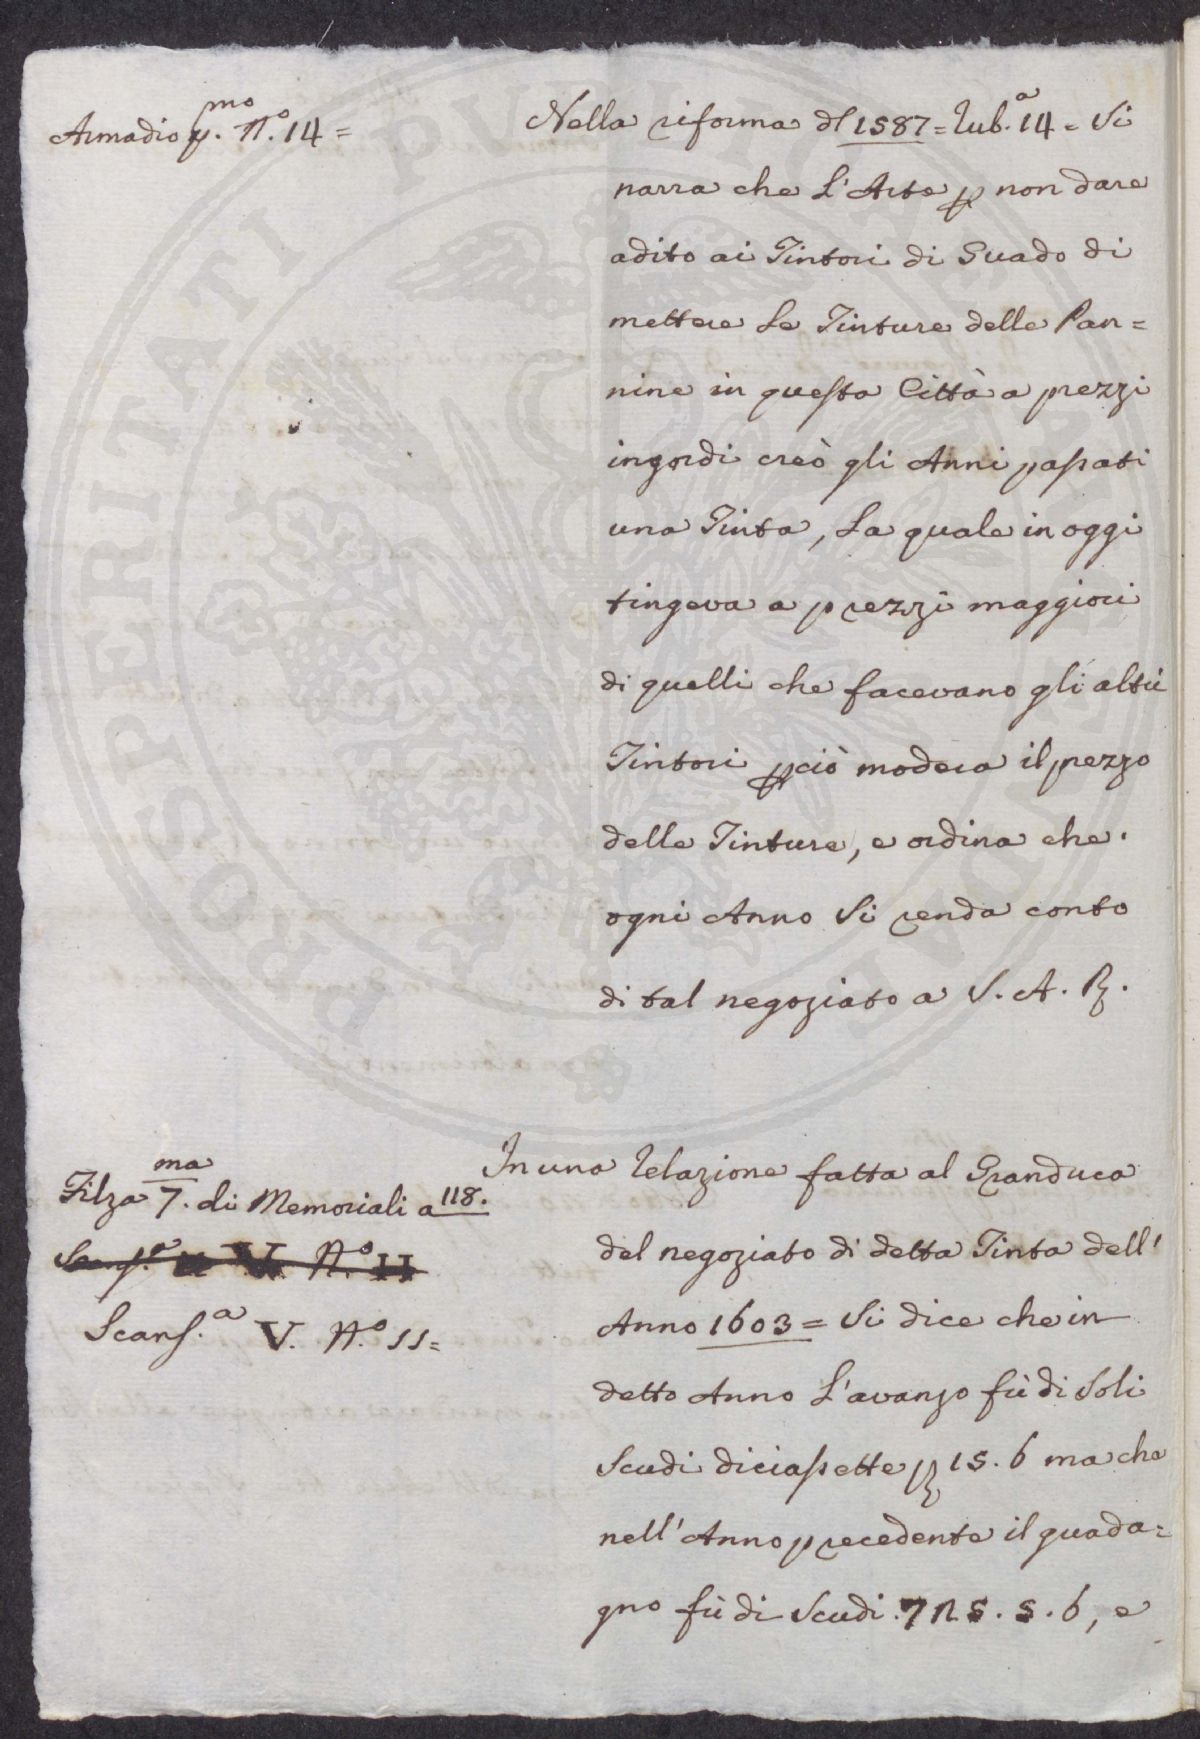 Armadio p.mo N.o 14=
Nella riforma dl 1587= Rub.a 14= Si
narra che L'Arte p non dare
adito ai Tintori di Guado di
mettere Le Tinture delle Pan=
nine in questa Città a prezzi
ingordi creò gli Anni passati
una Tinta, La quale in oggi
tingeva a prezzi maggiori
di quelli che facevano gli altri
Tintori pciò modera il prezzo
delle Tinture, e ordina che.
ogni Anno Si renda conto
di tal negoziato a S. A. R.
Filza 7.ma di Memoriali a 118.
Scans.a V. N.o II
Scans.a V. N.o 11=
In una Relazione fatta al Granduca
del negoziato di detta Tinta dell'
Anno 1603= Si dice che in
detto Anno L'avanzo fù di Soli
Scudi diciassette 15. 6 ma che
nell'Anno precedente il guada=
gno fù di Scudi . 5. 6, e